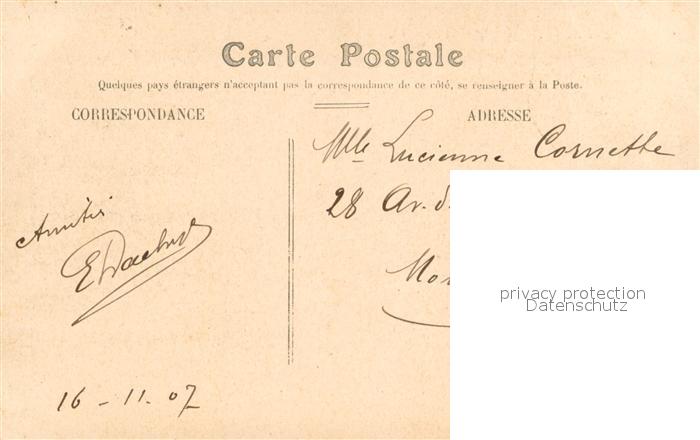 Carte Postale
Quelques pays étrangers n'acceptant pas la correspondance de ce côté, se renseigner à la Poste.
CORRESPONDANCE
ADRESSE
Mlle Lucienne Cornette
28 Av. d
Mon
Amitiés
E
16 - 11 - 07
privacy protection
Datenschutz